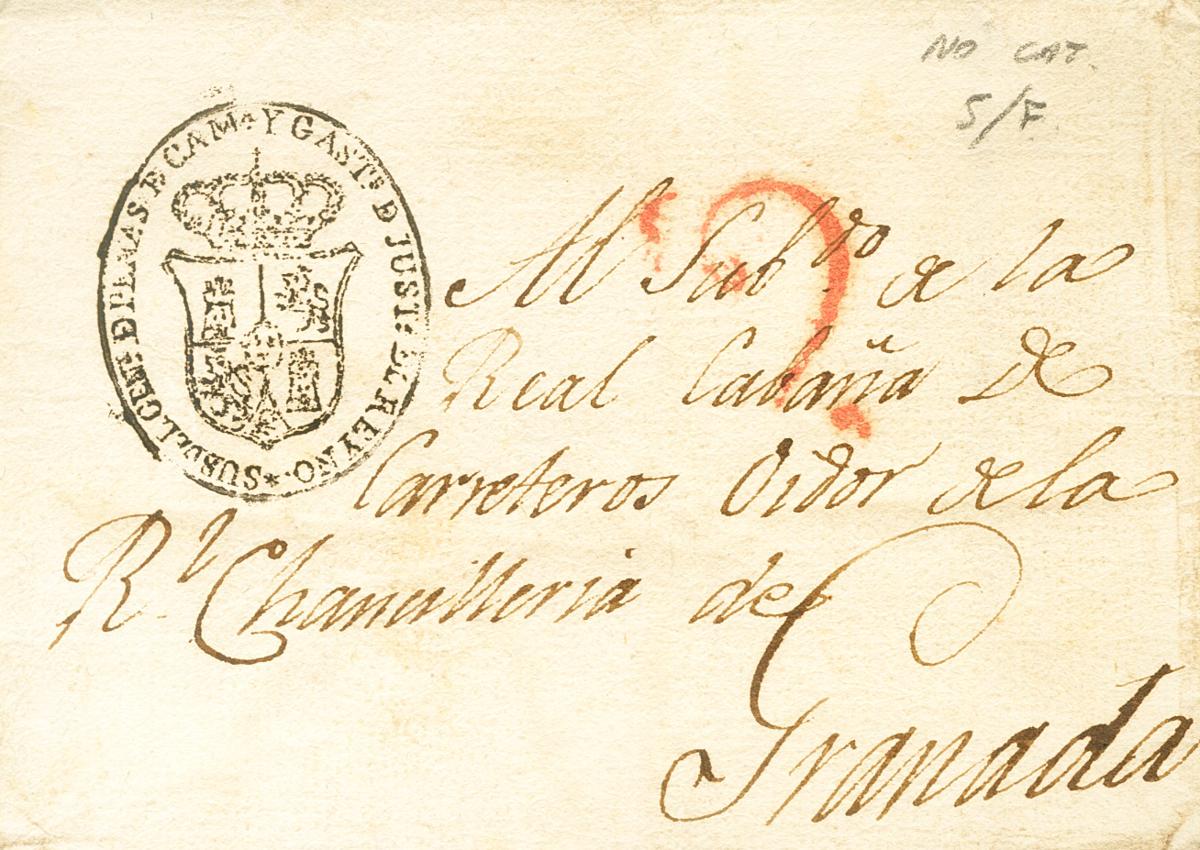 NO CAT.
S/F.
SUBDELGEN. D PENAS D CAMª Y GASTˢ D JUSTª DL REYNO. *
Al Subdo. de la
Real Cabaña De
Carreteros Oidor de la
Rl. Chancilleria de
Granada